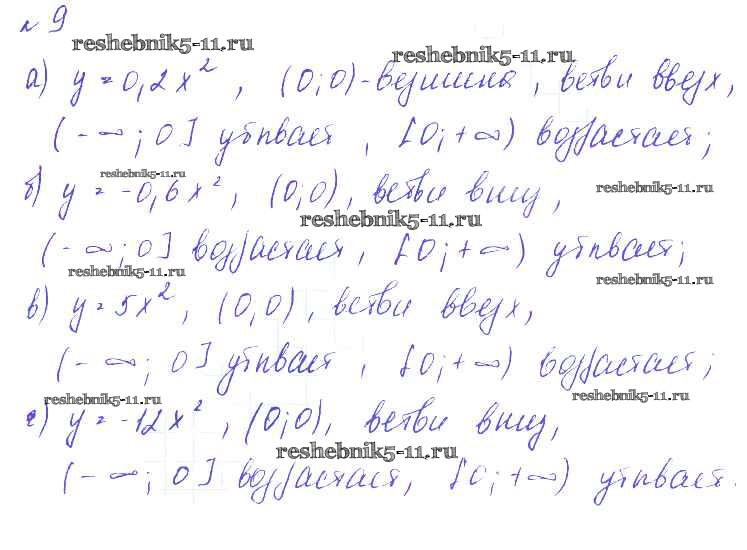 № 9
reshebnik5-11.ru
reshebnik5-11.ru
а) y = 0,2x², (0;0)-вершина, ветви вверх,
(-∞; 0] убывает, [0; +∞) возрастает;
reshebnik5-11.ru
б) y = -0,6x², (0;0), ветви вниз,
reshebnik5-11.ru
reshebnik5-11.ru
(-∞; 0] возрастает, [0; +∞) убывает;
reshebnik5-11.ru
reshebnik5-11.ru
в) y = 5x², (0,0), ветви вверх,
(-∞; 0] убывает, [0; +∞) возрастает;
reshebnik5-11.ru
reshebnik5-11.ru
г) y = -12x², (0;0), ветви вниз,
reshebnik5-11.ru
(-∞; 0] возрастает, [0; +∞) убывает.